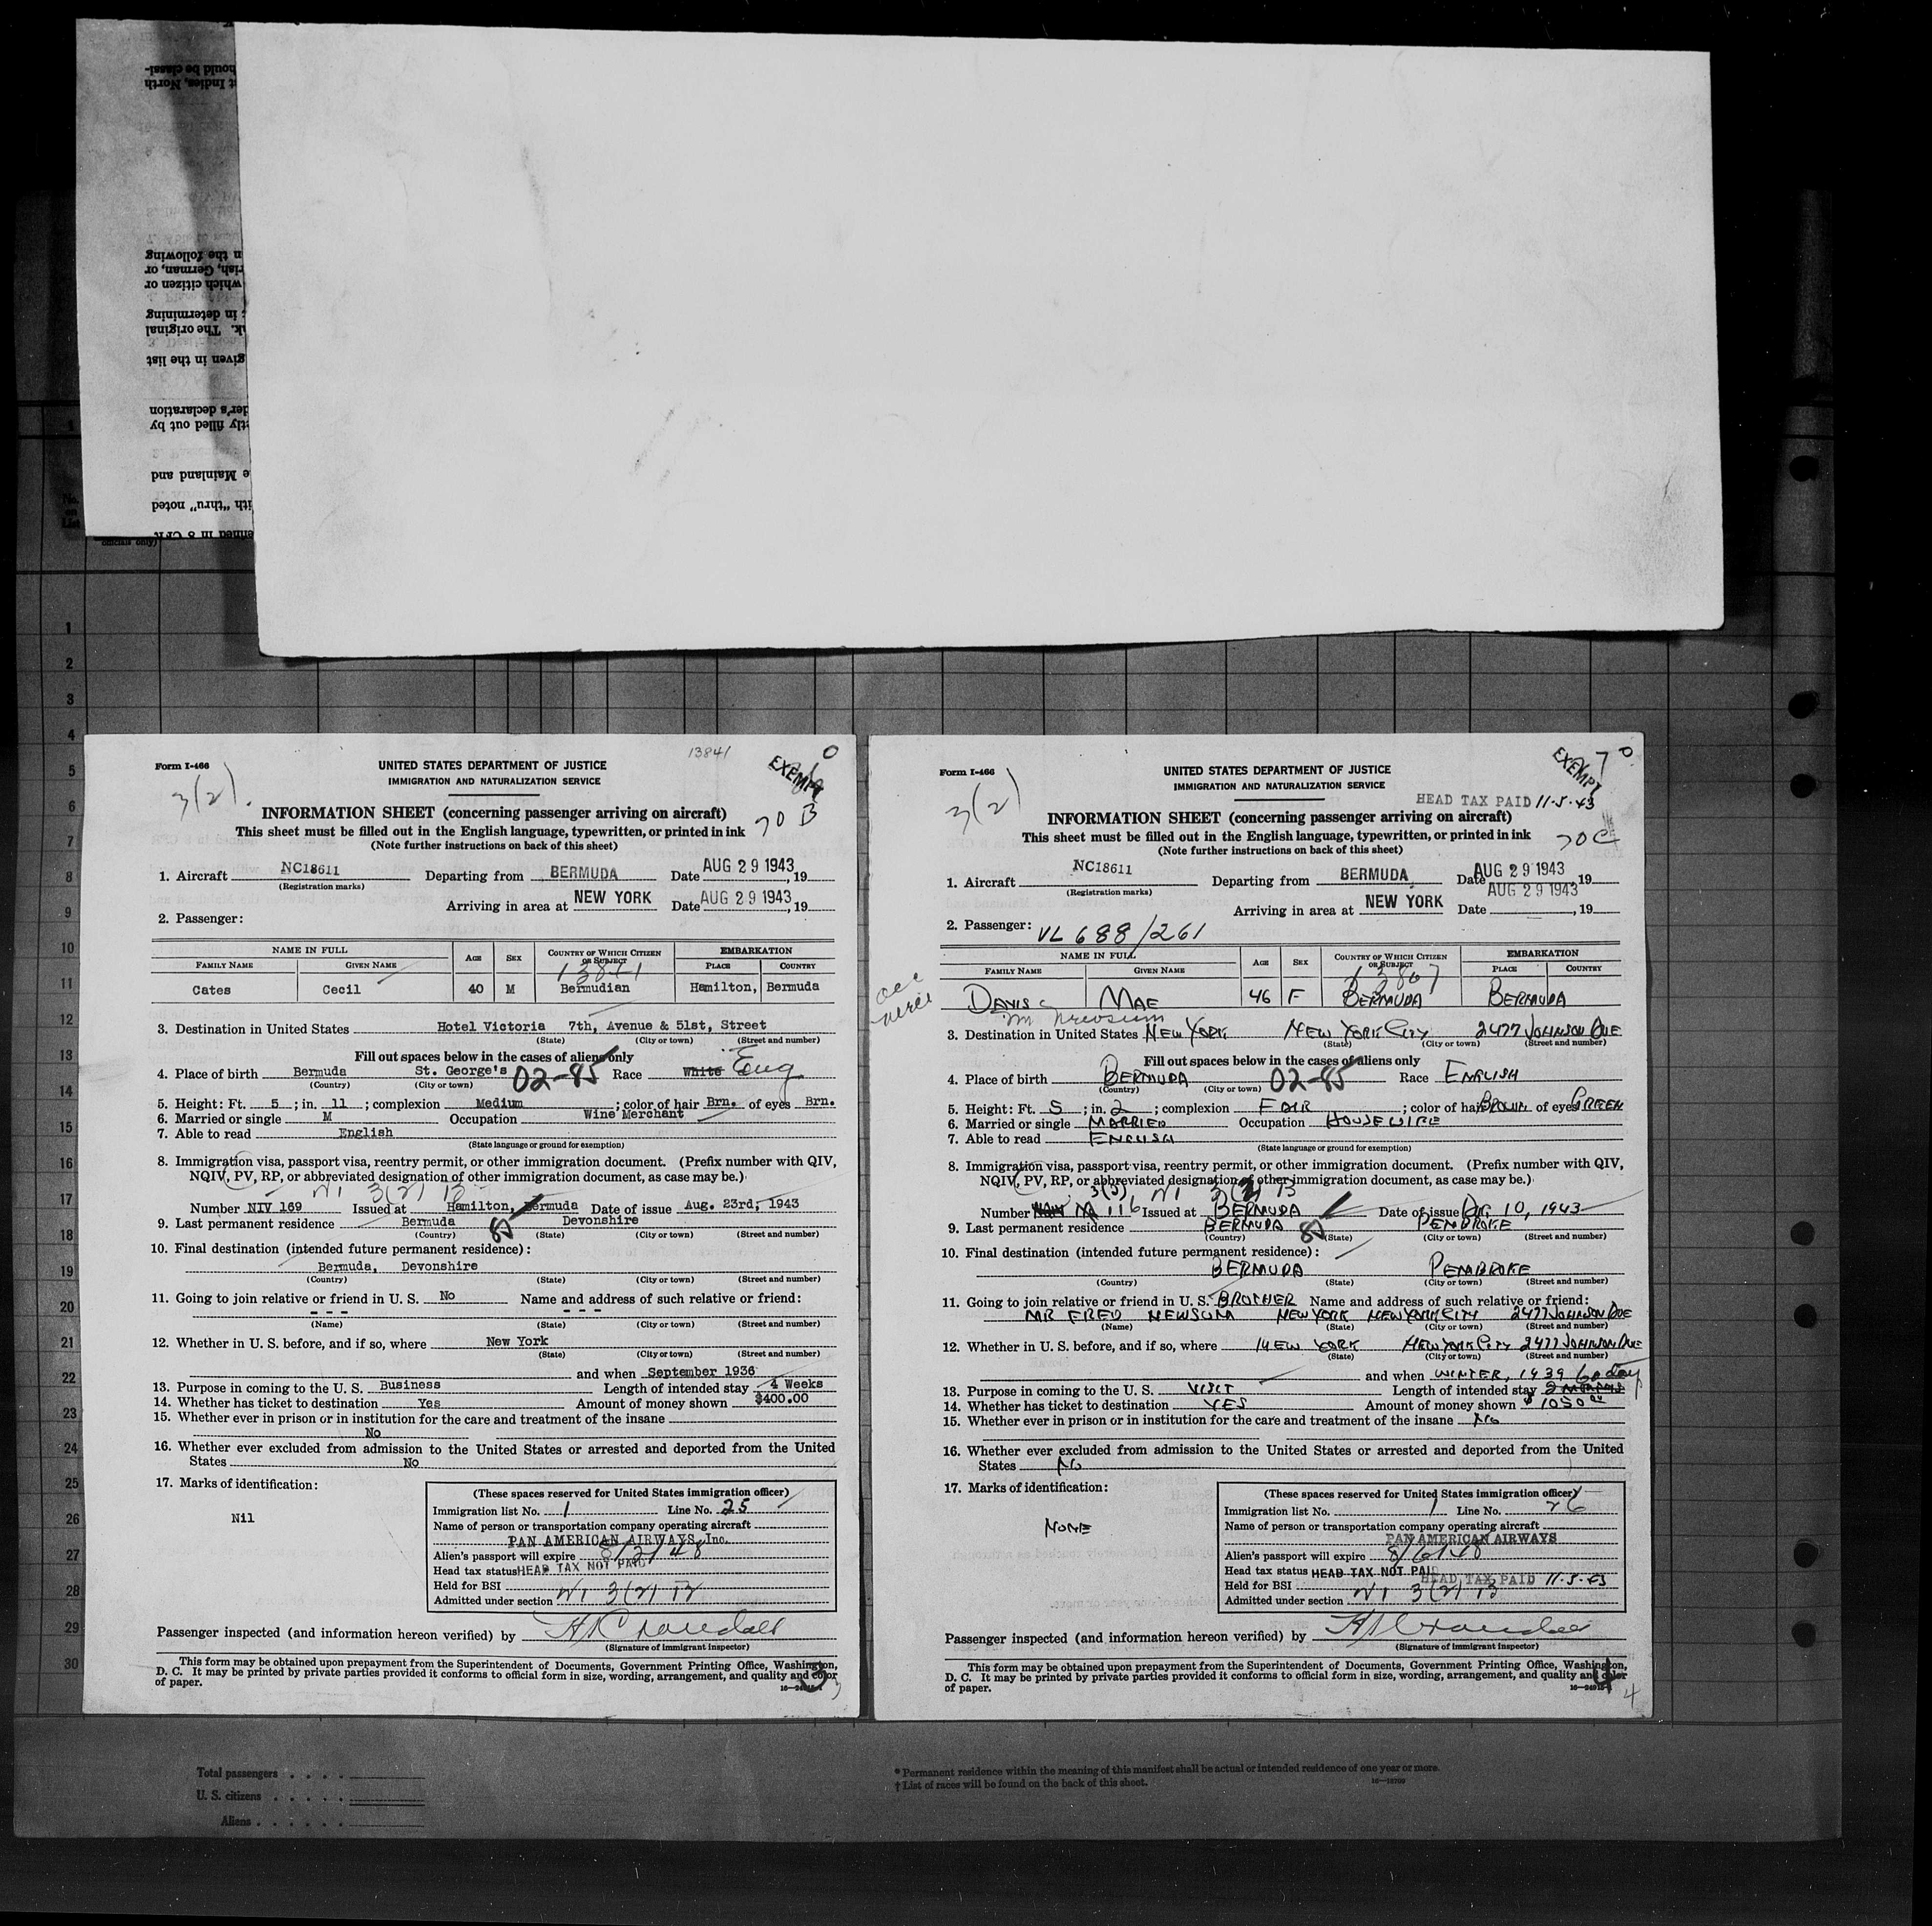 hould be classi-
t Indies, North
n the following
rish, German, or
which citizen or
; in determining
nk. The original
given in the list
der's declaration
tly filled out by
e Mainland and
ith "thru" noted
No.
on
List
1
2
3
4
5
6
7
8
9
10
11
12
13
14
15
16
17
18
19
20
21
22
23
24
25
26
27
28
29
30
13841
0
Form I-466
UNITED STATES DEPARTMENT OF JUSTICE
EXEMPT
IMMIGRATION AND NATURALIZATION SERVICE
3(2).
INFORMATION SHEET (concerning passenger arriving on aircraft)
70 B
This sheet must be filled out in the English language, typewritten, or printed in ink
(Note further instructions on back of this sheet)
1. Aircraft NC18611 Departing from BERMUDA Date AUG 29 1943, 19
(Registration marks)
Arriving in area at NEW YORK Date AUG 29 1943, 19
2. Passenger:
NAME IN FULL AGE SEX COUNTRY OF WHICH CITIZEN OR SUBJECT EMBARKATION
FAMILY NAME GIVEN NAME PLACE COUNTRY
13841
Cates Cecil 40 M Bermudian Hamilton, Bermuda
3. Destination in United States Hotel Victoria 7th, Avenue & 51st, Street
(State) (City or town) (Street and number)
Fill out spaces below in the cases of aliens only
4. Place of birth Bermuda St. George's 02-85 Race White Eng
(Country) (City or town)
5. Height: Ft. 5; in. 11; complexion Medium; color of hair Brn. of eyes Brn.
6. Married or single M Occupation Wine Merchant
7. Able to read English
(State language or ground for exemption)
8. Immigration visa, passport visa, reentry permit, or other immigration document. (Prefix number with QIV,
NQIV, PV, RP, or abbreviated designation of other immigration document, as case may be.)
3(2) B
Number NIV 169 Issued at Hamilton, Bermuda Date of issue Aug. 23rd, 1943
9. Last permanent residence Bermuda 85 Devonshire
(Country) (State) (City or town) (Street and number)
10. Final destination (intended future permanent residence):
Bermuda, Devonshire
(Country) (State) (City or town) (Street and number)
11. Going to join relative or friend in U. S. No Name and address of such relative or friend:
- - - - - -
(Name) (State) (City or town) (Street and number)
12. Whether in U. S. before, and if so, where New York
(State) (City or town) (Street and number)
and when September 1936
13. Purpose in coming to the U. S. Business Length of intended stay 4 Weeks
14. Whether has ticket to destination Yes Amount of money shown $400.00
15. Whether ever in prison or in institution for the care and treatment of the insane
No
16. Whether ever excluded from admission to the United States or arrested and deported from the United
States No
17. Marks of identification:
Nil
(These spaces reserved for United States immigration officer)
Immigration list No. 1 Line No. 25
Name of person or transportation company operating aircraft
PAN AMERICAN AIRWAYS, Inc.
Alien's passport will expire 8/2/48
Head tax status HEAD TAX NOT PAID
Held for BSI
Admitted under section 3(2) B
Passenger inspected (and information hereon verified) by H R Crandall
(Signature of immigrant inspector)
This form may be obtained upon prepayment from the Superintendent of Documents, Government Printing Office, Washington,
D. C. It may be printed by private parties provided it conforms to official form in size, wording, arrangement, and quality and color
of paper.
3
Form I-466
UNITED STATES DEPARTMENT OF JUSTICE
EXEMPT
7 0
IMMIGRATION AND NATURALIZATION SERVICE
3(2)
HEAD TAX PAID 11-5-43
INFORMATION SHEET (concerning passenger arriving on aircraft)
This sheet must be filled out in the English language, typewritten, or printed in ink
70 C
(Note further instructions on back of this sheet)
1. Aircraft NC18611 Departing from BERMUDA Date AUG 29 1943, 19
(Registration marks)
Arriving in area at NEW YORK Date AUG 29 1943, 19
2. Passenger: VL 688/261
NAME IN FULL AGE SEX COUNTRY OF WHICH CITIZEN OR SUBJECT EMBARKATION
FAMILY NAME GIVEN NAME PLACE COUNTRY
13867
DAVIS MAE 46 F BERMUDA BERMUDA
3. Destination in United States NEW YORK NEW YORK CITY 2477 JOHNSON AVE
(State) (City or town) (Street and number)
Fill out spaces below in the cases of aliens only
4. Place of birth BERMUDA 02-85 Race ENGLISH
(Country) (City or town)
5. Height: Ft. 5; in. 2; complexion FAIR; color of hair BROWN of eyes GREEN
6. Married or single MARRIED Occupation HOUSEWIFE
7. Able to read ENGLISH
(State language or ground for exemption)
8. Immigration visa, passport visa, reentry permit, or other immigration document. (Prefix number with QIV,
NQIV, PV, RP, or abbreviated designation of other immigration document, as case may be.)
3(3) 3(2) B
Number 116 Issued at BERMUDA Date of issue AUG 10, 1943
9. Last permanent residence BERMUDA 85 PEMBROKE
(Country) (State) (City or town) (Street and number)
10. Final destination (intended future permanent residence):
BERMUDA PEMBROKE
(Country) (State) (City or town) (Street and number)
11. Going to join relative or friend in U. S. BROTHER Name and address of such relative or friend:
MR FRED NEWSUM NEW YORK NEW YORK CITY 2477 JOHNSON AVE
(Name) (State) (City or town) (Street and number)
12. Whether in U. S. before, and if so, where NEW YORK NEW YORK CITY 2477 JOHNSON AVE
(State) (City or town) (Street and number)
and when WINTER, 1939 60 days
13. Purpose in coming to the U. S. VISIT Length of intended stay 2 MONTHS
14. Whether has ticket to destination YES Amount of money shown $1050
15. Whether ever in prison or in institution for the care and treatment of the insane No
16. Whether ever excluded from admission to the United States or arrested and deported from the United
States No
17. Marks of identification:
NONE
(These spaces reserved for United States immigration officer)
Immigration list No. 1 Line No. 26
Name of person or transportation company operating aircraft
PAN AMERICAN AIRWAYS
Alien's passport will expire 8/6/48
Head tax status HEAD TAX NOT PAID
HEAD TAX PAID 11-5-43
Held for BSI
Admitted under section 3(2) B
Passenger inspected (and information hereon verified) by H R Crandall
(Signature of immigrant inspector)
This form may be obtained upon prepayment from the Superintendent of Documents, Government Printing Office, Washington,
D. C. It may be printed by private parties provided it conforms to official form in size, wording, arrangement, and quality and color
of paper.
4
Total passengers . . . .
U. S. citizens . . . . .
Aliens . . . . . .
* Permanent residence within the meaning of this manifest shall be actual or intended residence of one year or more.
† List of races will be found on the back of this sheet.